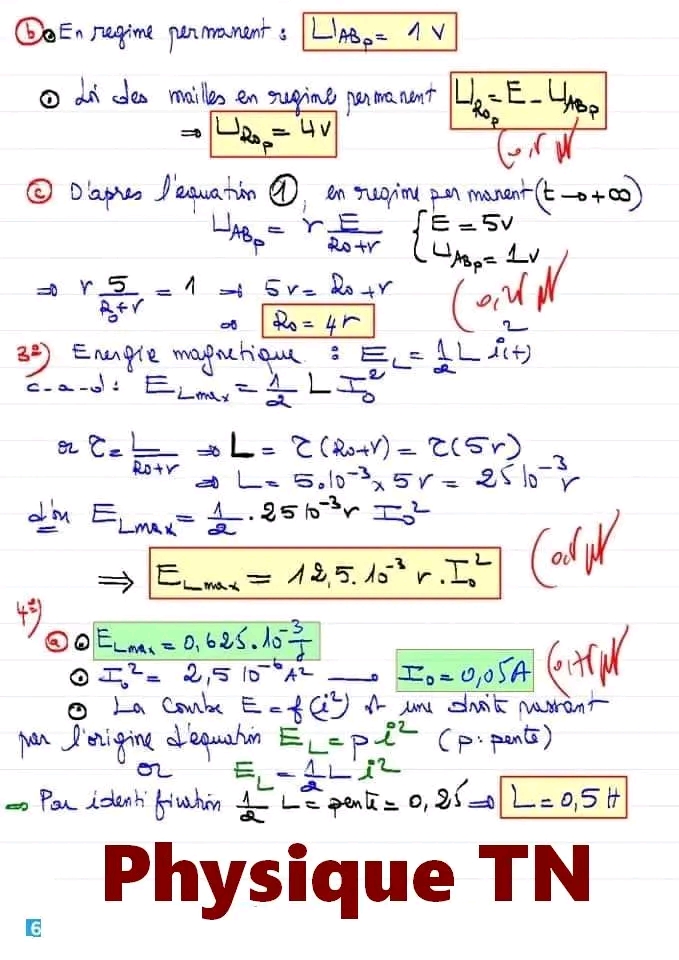 b) • En regime permanent : U_ABp = 1 V
• Loi des mailles en regime permanent U_R0p = E - U_ABp
⇒ U_R0p = 4V
c) D'apres l'equation ①, en regime permanent (t → +∞)
U_ABp = r E/(R0+r) { E = 5V
U_ABp = 1V
⇒ r 5/(R0+r) = 1 → 5r = R0+r
⇒ R0 = 4r
3°) Energie magnetique : E_L = 1/2 L i²(t)
c-a-d : E_Lmax = 1/2 L I0²
or τ = L/(R0+r) ⇒ L = τ(R0+r) = τ(5r)
⇒ L = 5.10⁻³ x 5r = 25 10⁻³ r
d'où E_Lmax = 1/2 . 25 10⁻³ r I0²
⇒ E_Lmax = 12,5. 10⁻³ r . I0²
4°)
a) • E_Lmax = 0,625. 10⁻³ J
• I0² = 2,5 10⁻⁶ A² → I0 = 0,05A
• La courbe E = f(i²) est une droite passant
par l'origine d'equation E_L = p i² (p : pente)
or E_L = 1/2 L i²
⇒ Par identification 1/2 L = pente = 0,25 ⇒ L = 0,5 H
Physique TN
6